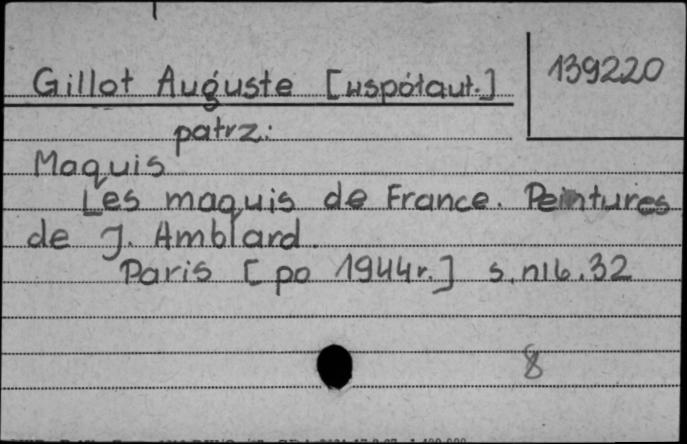 Gillot Auguste [współaut.]
139220
patrz:
Maquis
Les maquis de France. Peintures
de J. Amblard.
Paris [po 1944r.] s.nlb.32
8